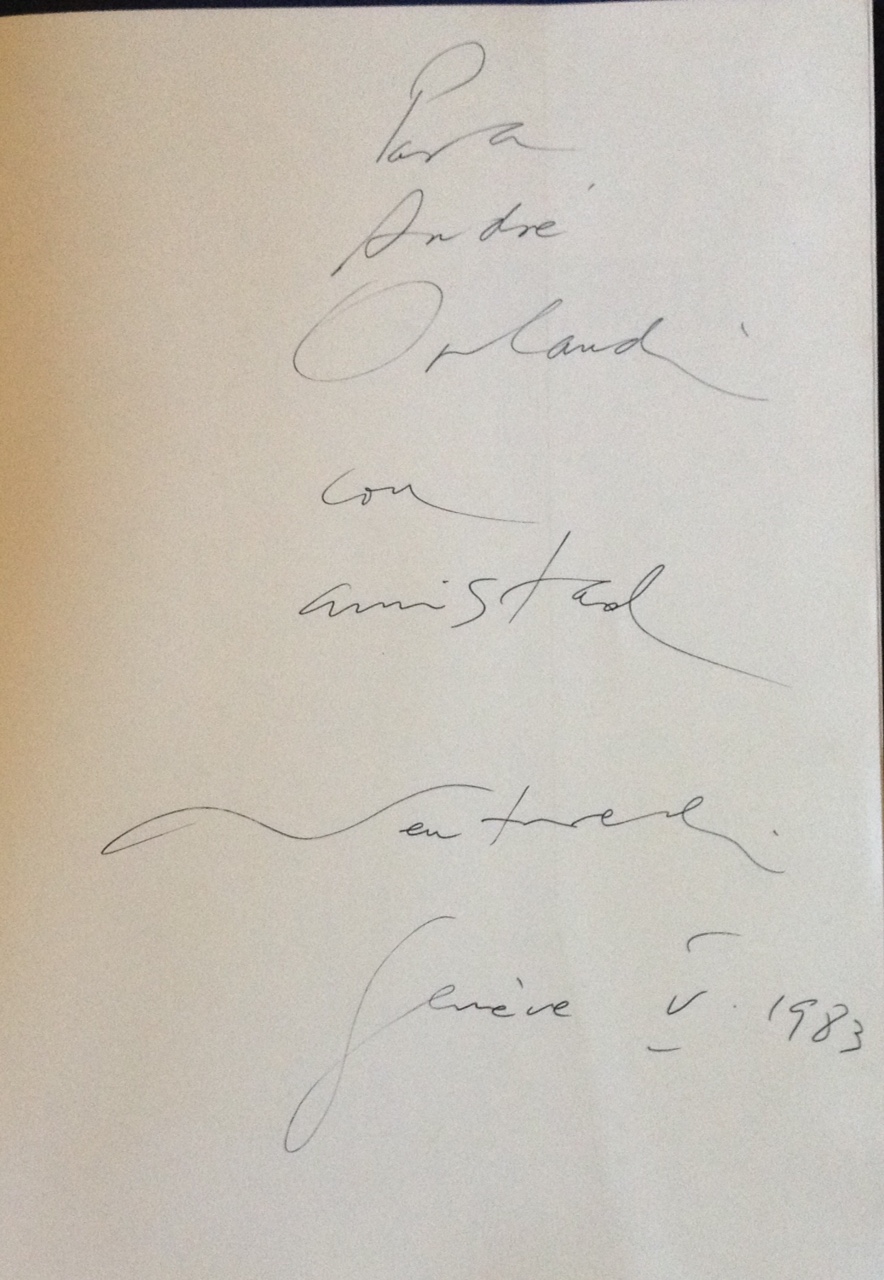 Para
André
Orlandi
con
amistad
Venturelli
Genève V. 1983